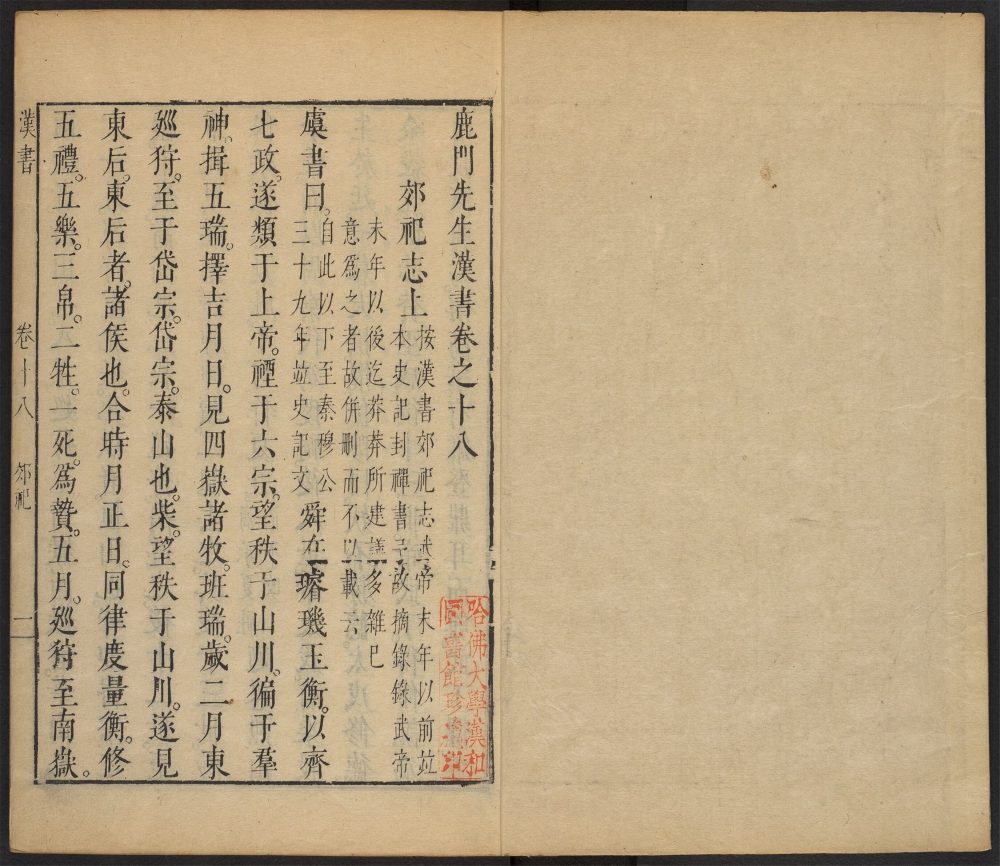 鹿門先生漢書卷之十八
郊祀志上
按漢書郊祀志武帝末年以前竝
本史記封禪書予故摘錄錄武帝
末年以後迄莽莽所建議多雜巳
意爲之者故併刪而不以載云
虞書曰
自此以下至秦穆公
三十九年竝史記文
舜在璿璣玉衡。以齊
七政。遂類于上帝。禋于六宗。望秩于山川。徧于羣
神。揖五瑞。擇吉月日。見四嶽諸牧。班瑞。歲二月東
廵狩。至于岱宗。岱宗。泰山也。柴。望秩于山川。遂見
東后。東后者。諸侯也。合時月正日。同律度量衡。修
五禮。五樂。三帛。二牲。一死。爲贄。五月。廵狩至南嶽。
漢書 卷十八 郊祀 一
哈佛大學漢和
圖書館珍藏印